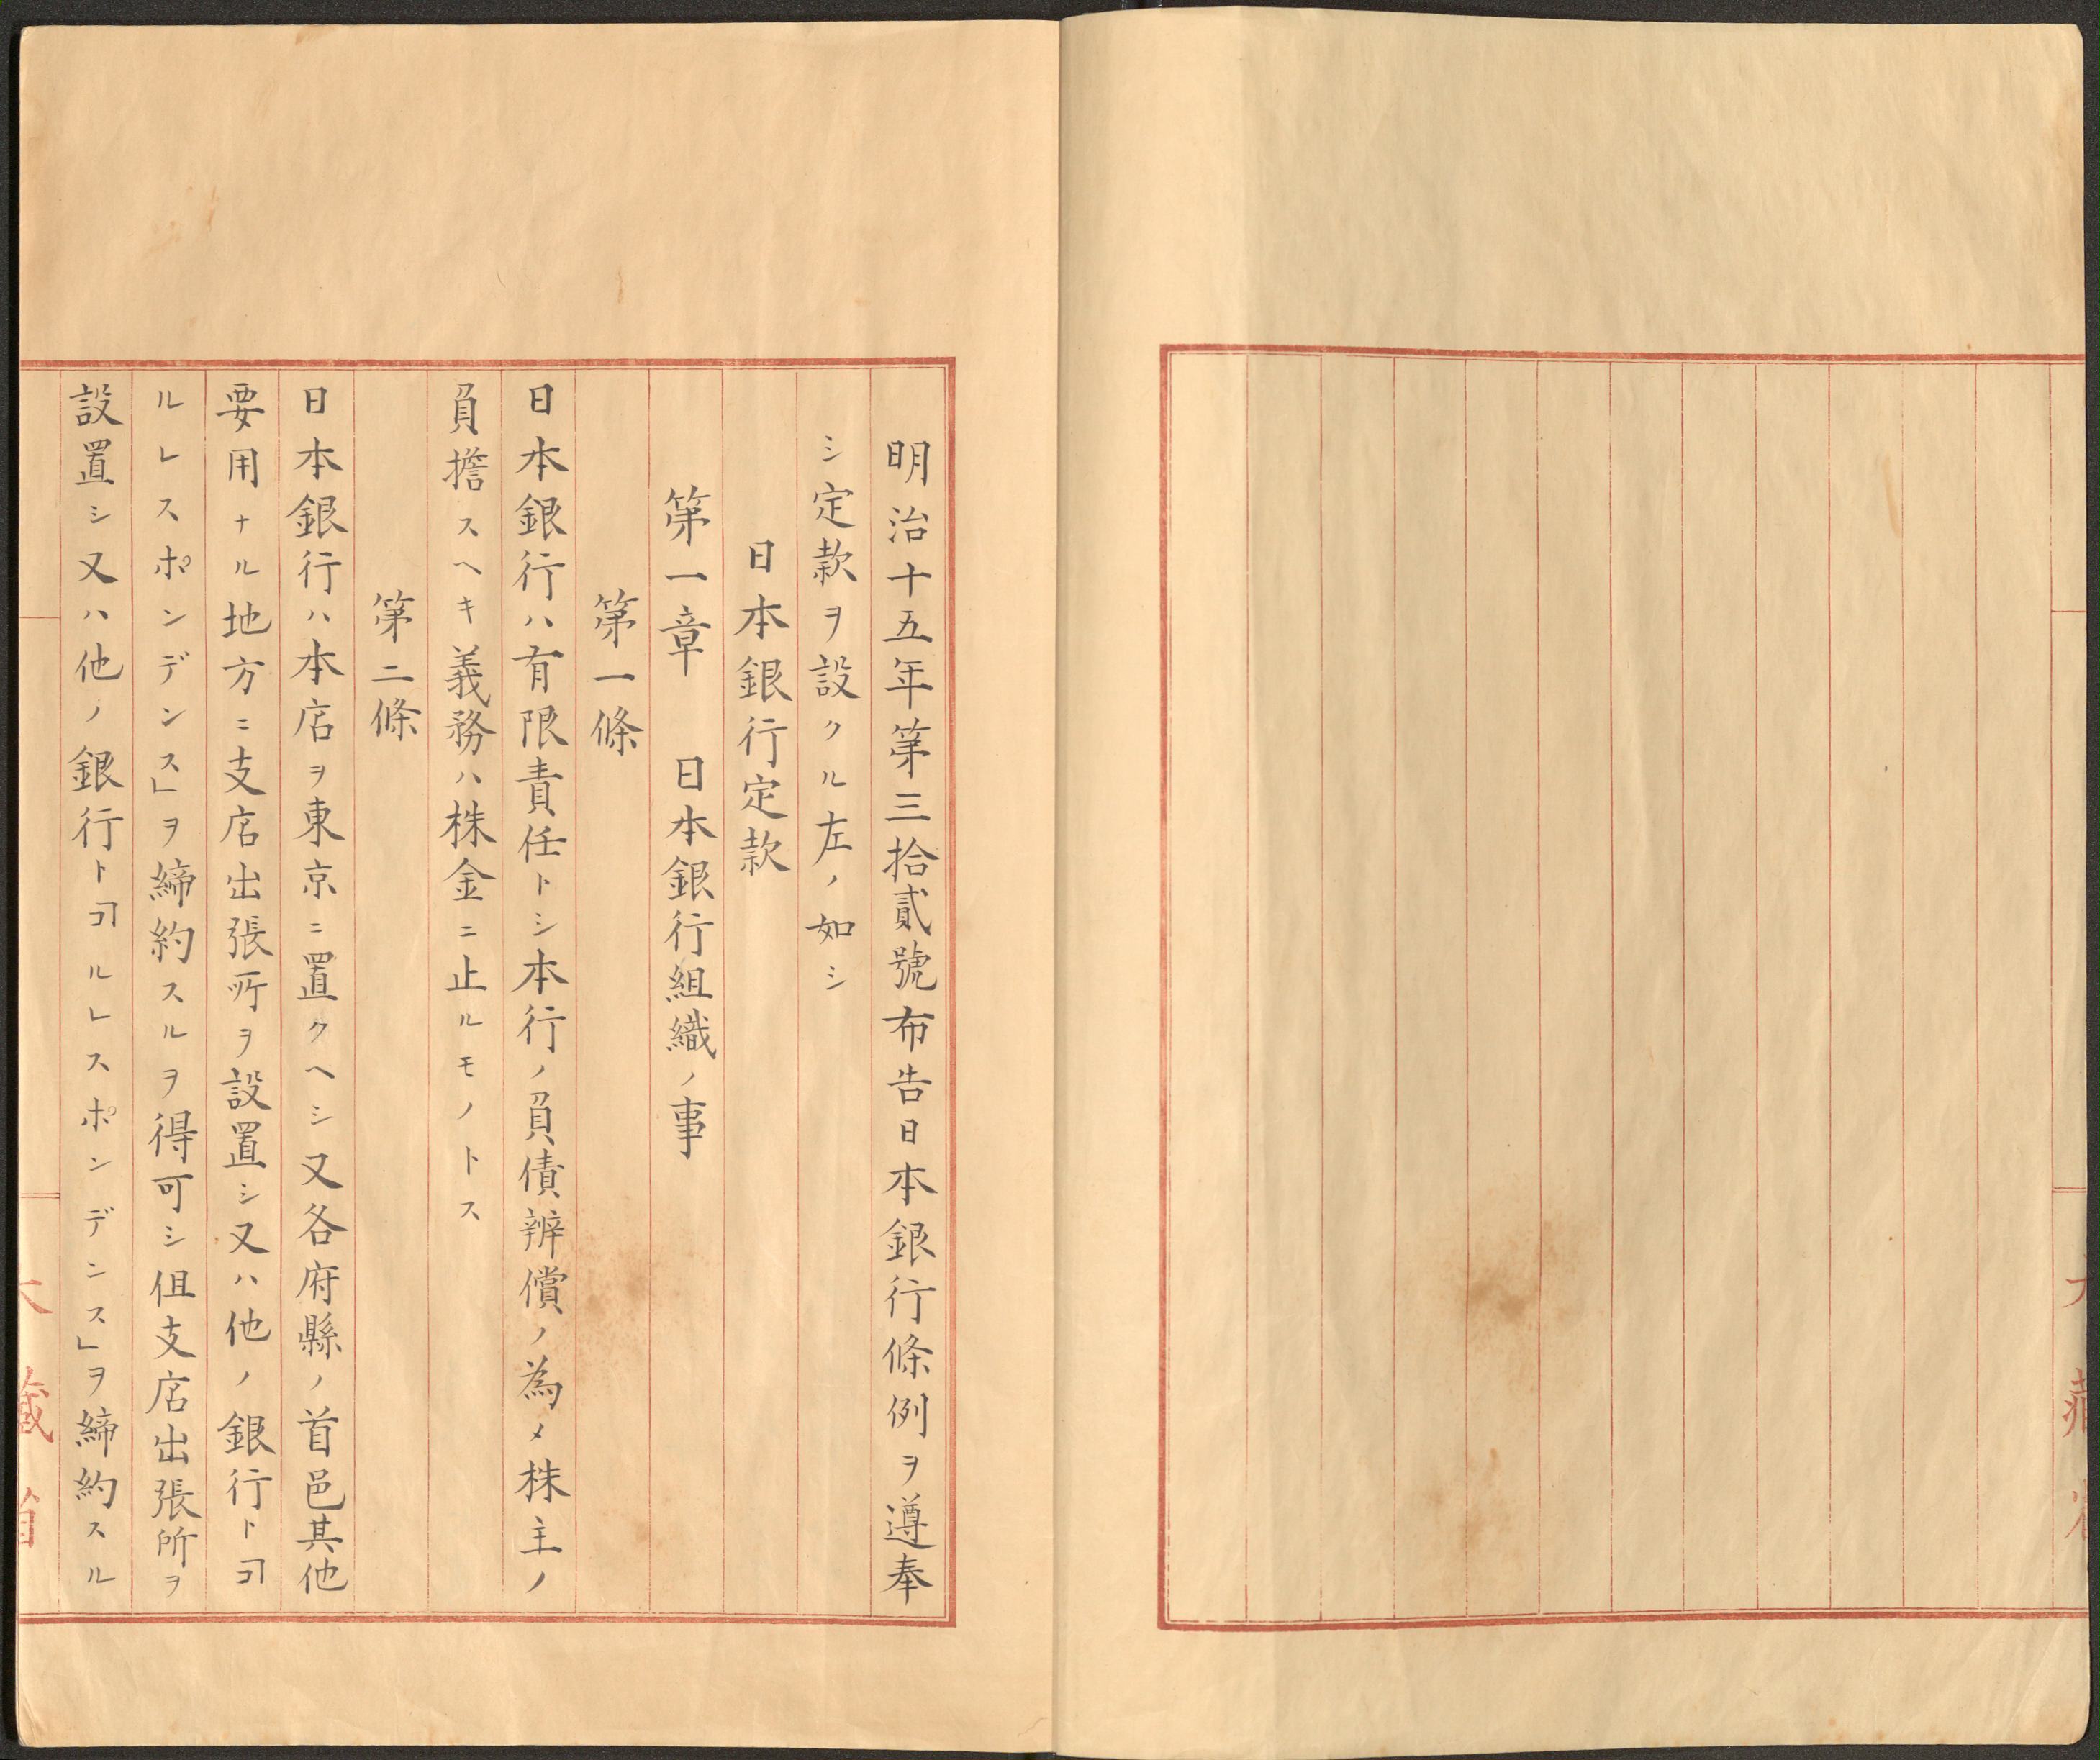 明治十五年第三拾貳號布告日本銀行條例ヲ遵奉
シ定款ヲ設クル左ノ如シ
日本銀行定款
第一章 日本銀行組織ノ事
第一條
日本銀行ハ有限責任トシ本行ノ負債辨償ノ為メ株主ノ
負擔スヘキ義務ハ株金ニ止ルモノトス
第二條
日本銀行ハ本店ヲ東京ニ置クヘシ又各府縣ノ首邑其他
要用ナル地方ニ支店出張所ヲ設置シ又ハ他ノ銀行トコ
ルレスポンデンス」ヲ締約スルヲ得可シ但支店出張所ヲ
設置シ又ハ他ノ銀行トコルレスポンデンス」ヲ締約スル